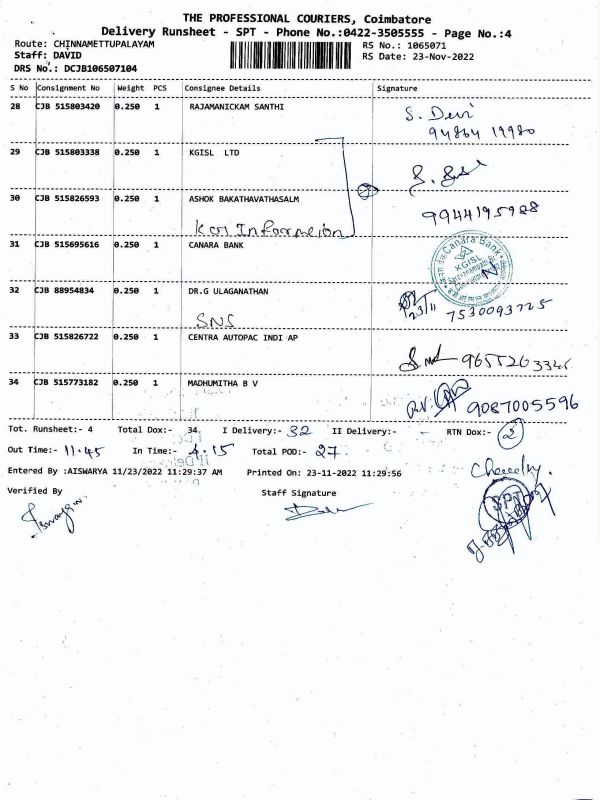 THE PROFESSIONAL COURIERS, Coimbatore
Delivery Runsheet - SPT - Phone No.:0422-3505555 - Page No.:4
Route: CHINNAMETTUPALAYAM
RS No.: 1065071
Staff: DAVID
RS Date: 23-Nov-2022
DRS No.: DCJB106507104
S No Consignment No Weight PCS Consignee Details Signature
28 CJB 515803420 0.250 1 RAJAMANICKAM SANTHI
S. Devi
94864 19980
29 CJB 515803338 0.250 1 KGISL LTD
30 CJB 515826593 0.250 1 ASHOK BAKATHAVATHASALM
9944195988
KGI Information
31 CJB 515695616 0.250 1 CANARA BANK
Canara Bank
KGISL
32 CJB 88954834 0.250 1 DR.G ULAGANATHAN
23/11
7530093725
SNS
33 CJB 515826722 0.250 1 CENTRA AUTOPAC INDI AP
34 CJB 515773182 0.250 1 MADHUMITHA B V
9087005596
Tot. Runsheet:- 4 Total Dox:- 34. I Delivery:- 32 II Delivery:- - RTN Dox:- 2
Out Time:- 11.45 In Time:- 4.15 Total POD:- 27.
Entered By :AISWARYA 11/23/2022 11:29:37 AM Printed On: 23-11-2022 11:29:56
Verified By Staff Signature
SPT